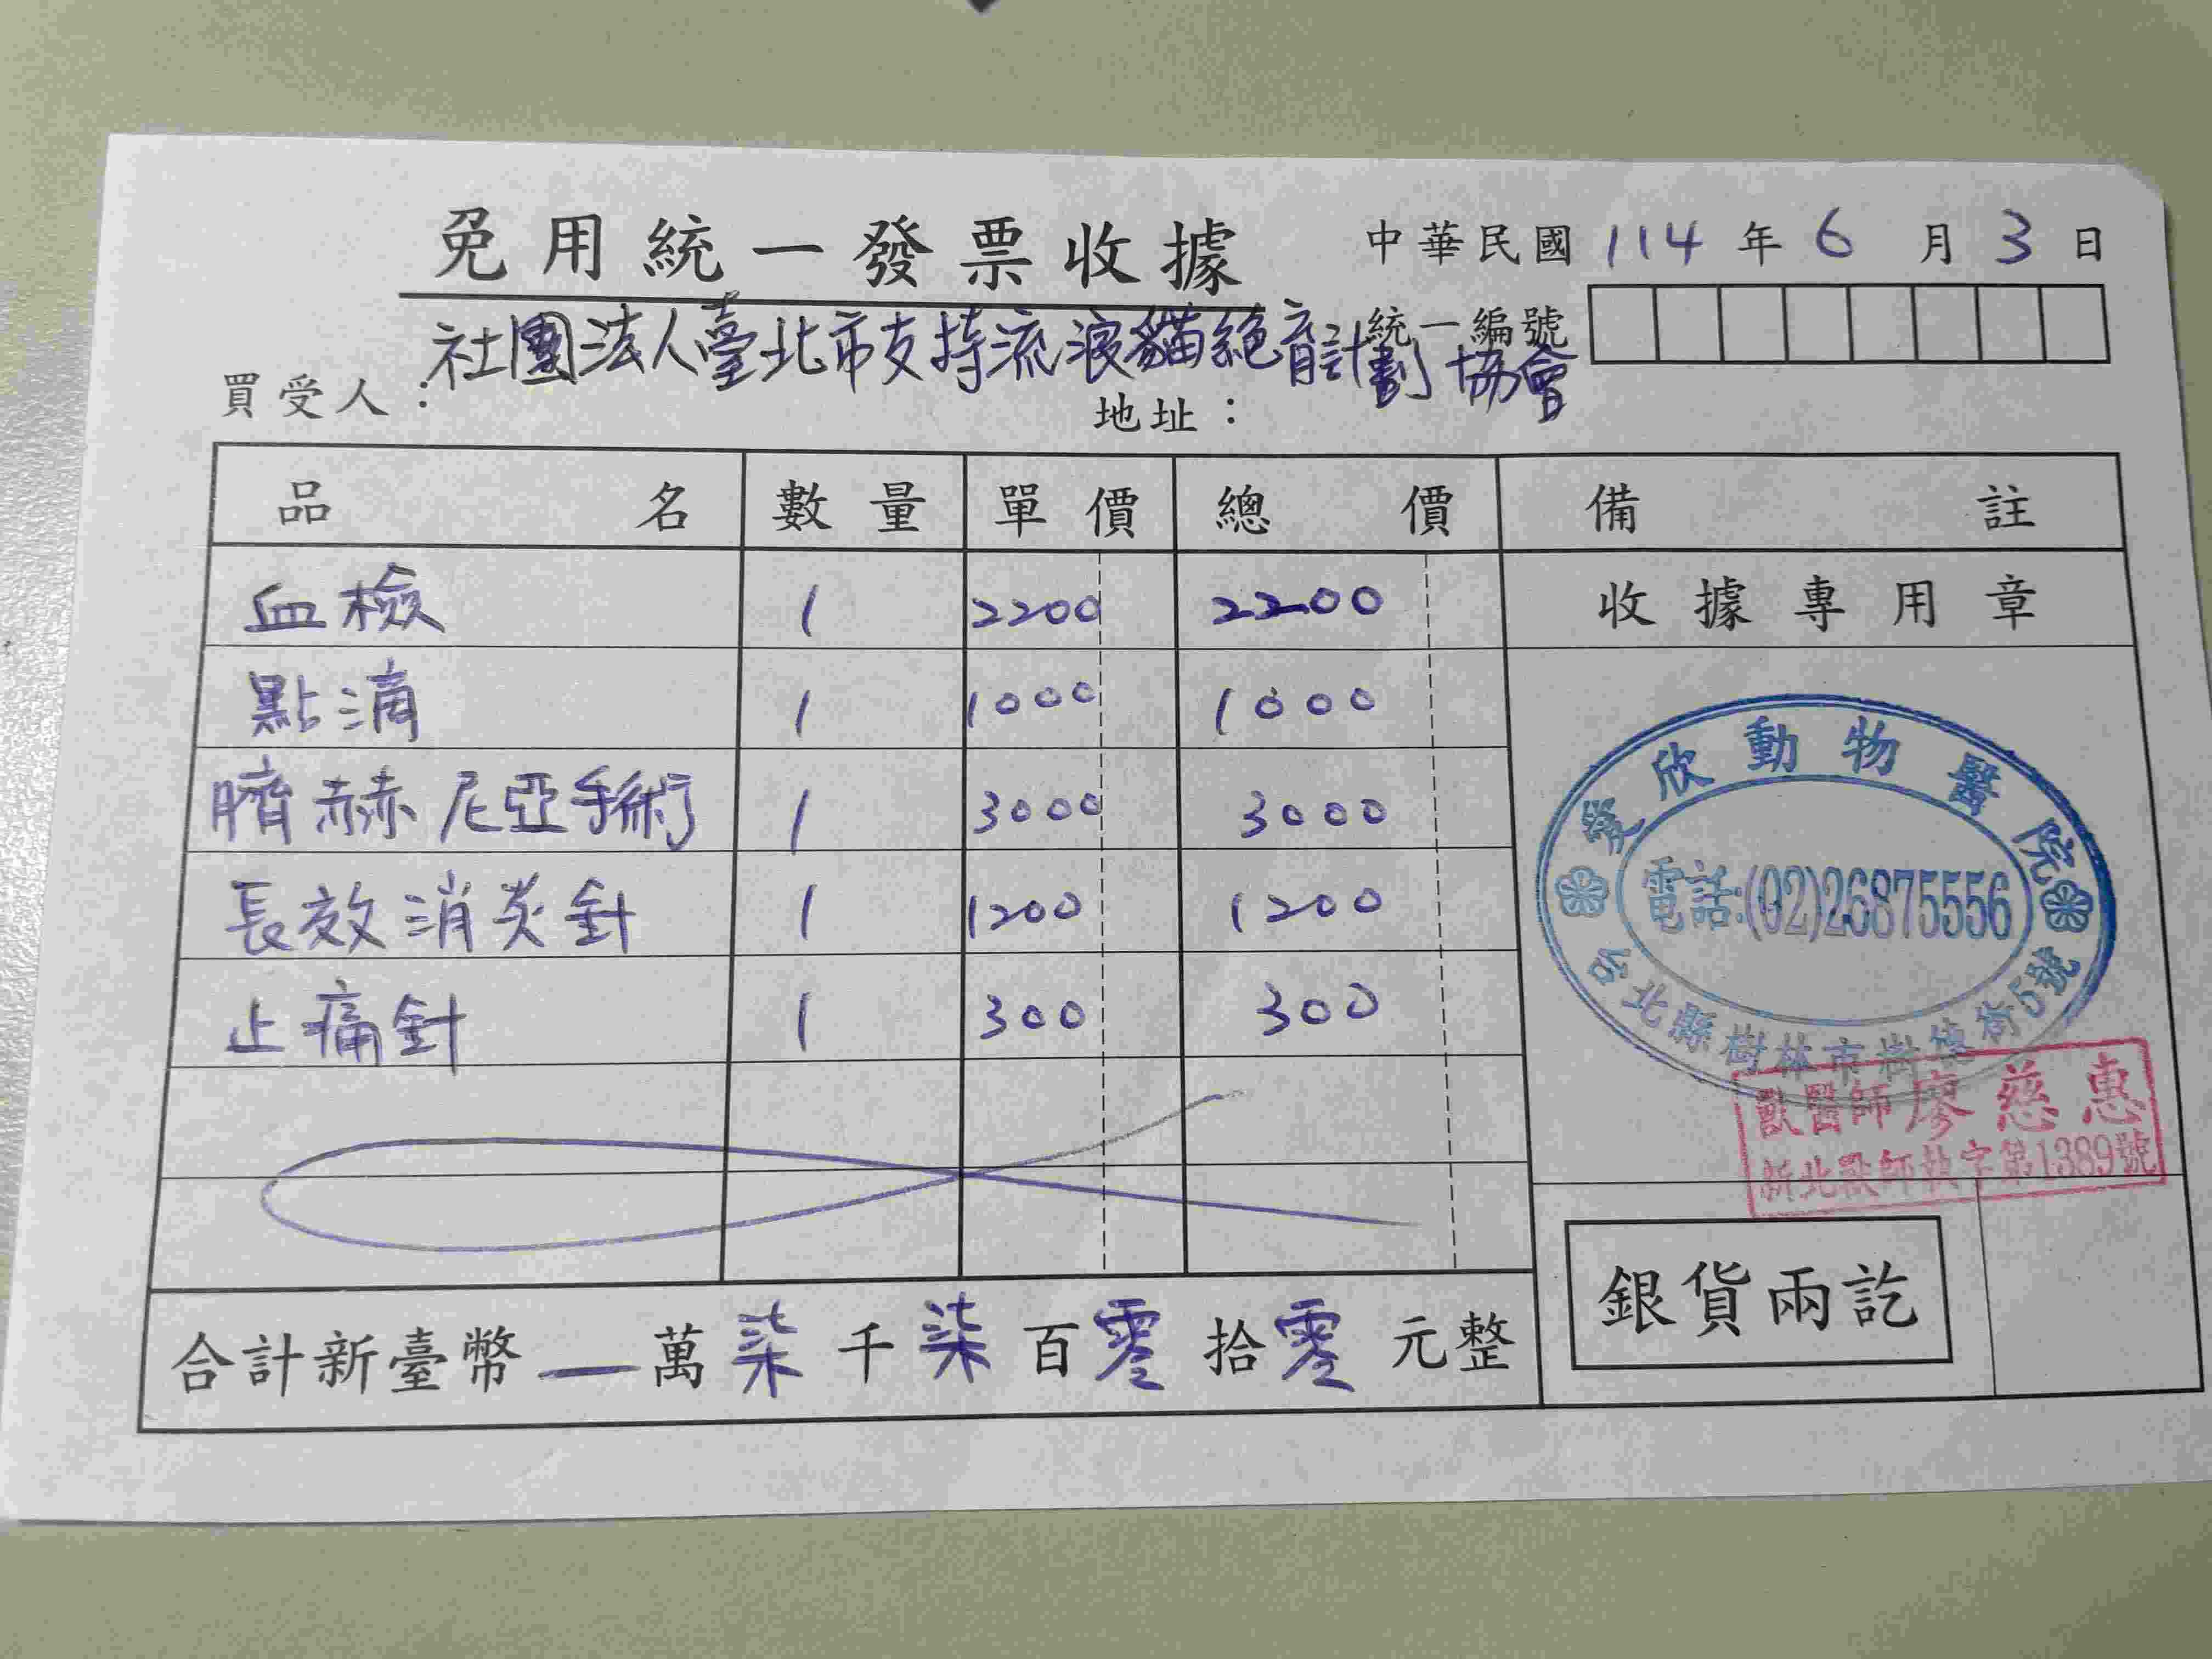 免用統一發票收據
中華民國 114 年 6 月 3 日
統一編號
買受人：社團法人臺北市支持流浪貓絕育計劃協會
地址：
品名 數量 單價 總價 備註
血檢 1 2200 2200 收據專用章
點滴 1 1000 1000
臍赫尼亞手術 1 3000 3000
長效消炎針 1 1200 1200
止痛針 1 300 300
愛欣動物醫院
電話:(02)26875556
台北縣樹林市樹德街5號
獸醫師廖慈惠
新北獸師執字第1389號
合計新臺幣 一 萬 柒 千 柒 百 零 拾 零 元整
銀貨兩訖